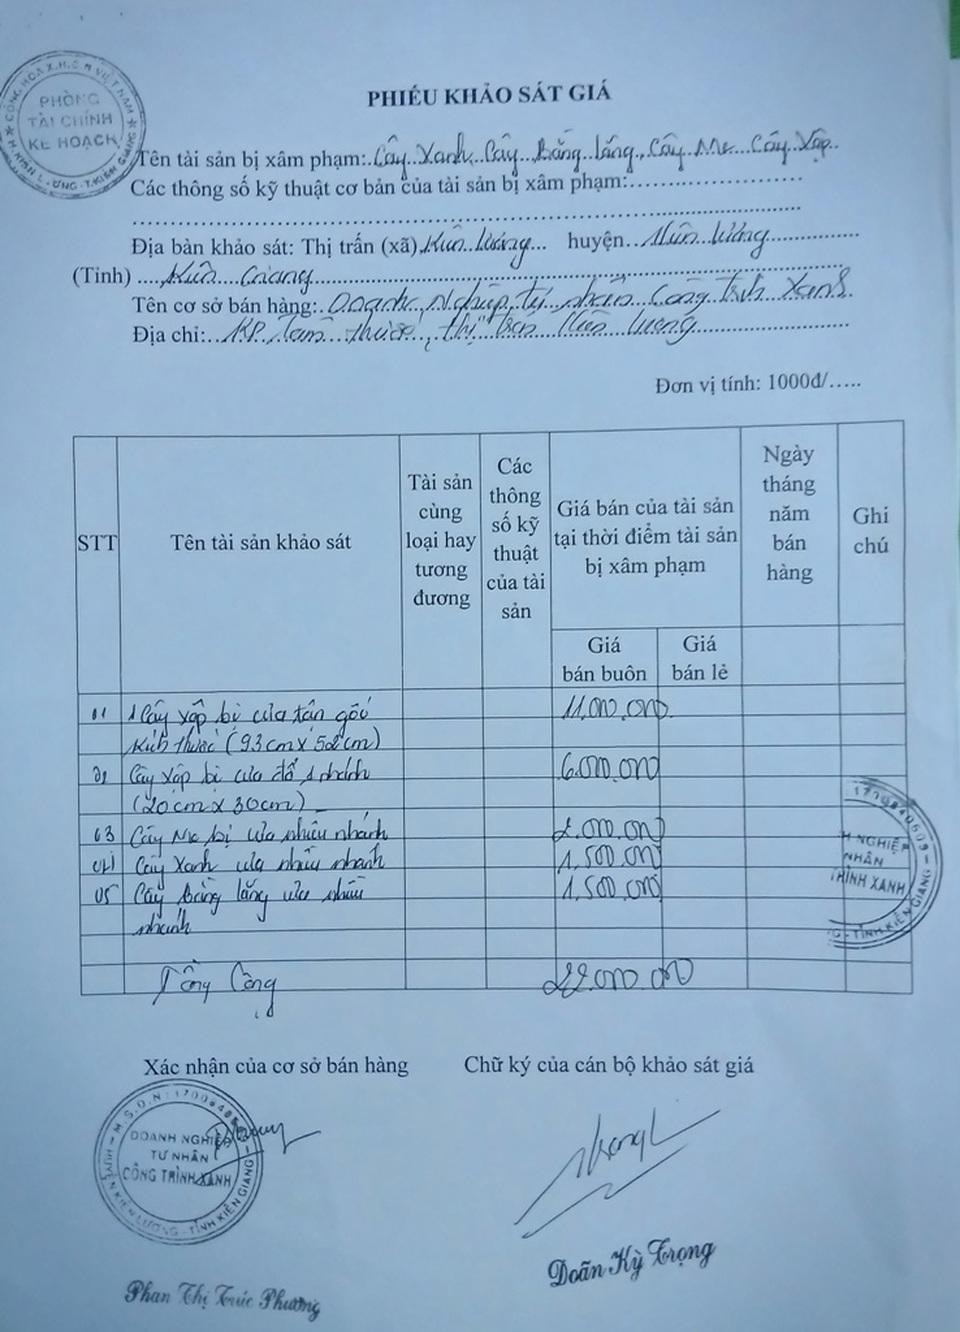 CỘNG HÒA X.H.C.N VIỆT NAM
PHÒNG
TÀI CHÍNH
KẾ HOẠCH
H.KIÊN LƯƠNG-T.KIÊN GIANG
PHIẾU KHẢO SÁT GIÁ
Tên tài sản bị xâm phạm: Cây Xanh, Cây Bằng lăng, Cây Me Cây Xộp
Các thông số kỹ thuật cơ bản của tài sản bị xâm phạm:
Địa bàn khảo sát: Thị trấn (xã) Kiên Lương huyện Kiên Lương
(Tỉnh) Kiên Giang
Tên cơ sở bán hàng: Doanh Nghiệp tư nhân Công trình Xanh
Địa chỉ: KP Tám Thước, thị trấn Kiên Lương
Đơn vị tính: 1000đ/.....
STT
Tên tài sản khảo sát
Tài sản
cùng
loại hay
tương
đương
Các
thông
số kỹ
thuật
của tài
sản
Giá bán của tài sản
tại thời điểm tài sản
bị xâm phạm
Ngày
tháng
năm
bán
hàng
Ghi
chú
Giá
bán buôn
Giá
bán lẻ
01 1 Cây xộp bị cưa tận gốc 11.000.000
kích thước (93cm x 52cm)
02 Cây xộp bị cưa đổ 1 nhánh 6.000.000
(20cm x 30cm)
03 Cây Me bị cưa nhiều nhánh 2.000.000
04 Cây Xanh cưa nhiều nhánh 1.500.000
05 Cây bằng lăng cưa nhiều 1.500.000
nhánh
Tổng Cộng 22.000.000
H NGHIỆP
NHÂN
TRÌNH XANH
TỈNH KIÊN GIANG
Xác nhận của cơ sở bán hàng Chữ ký của cán bộ khảo sát giá
DOANH NGHIỆP
TƯ NHÂN
CÔNG TRÌNH XANH
HUYỆN KIÊN LƯƠNG-TỈNH KIÊN GIANG
Doãn Kỳ Trọng
Phan Thị Trúc Phương